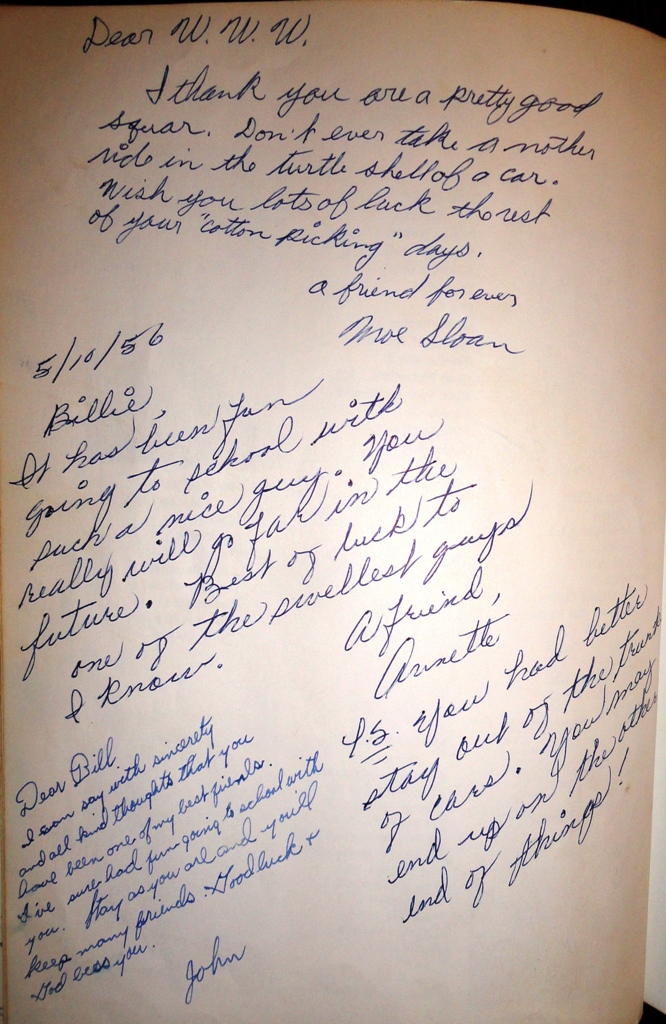 Dear W. W. W.
I thank you are a pretty good
squar. Don't ever take a nother
ride in the turtle shell of a car.
Wish you lots of luck the rest
of your "cotton picking" days.
a friend for ever
Moe Sloan
5/10/56
Billie,
It has been fun
going to school with
such a nice guy. You
really will go far in the
future. Best of luck to
one of the swellest guys
I know.
A friend,
Annette
P.S. You had better
stay out of the trunk
of cars. You may
end up on the other
end of things!
Dear Bill,
I can say with sincerety
and all kind thoughts that you
have been one of my best friends.
I've sure had fun going to school with
you. Stay as you are and you'll
keep many friends. Good luck +
God bess you.
John